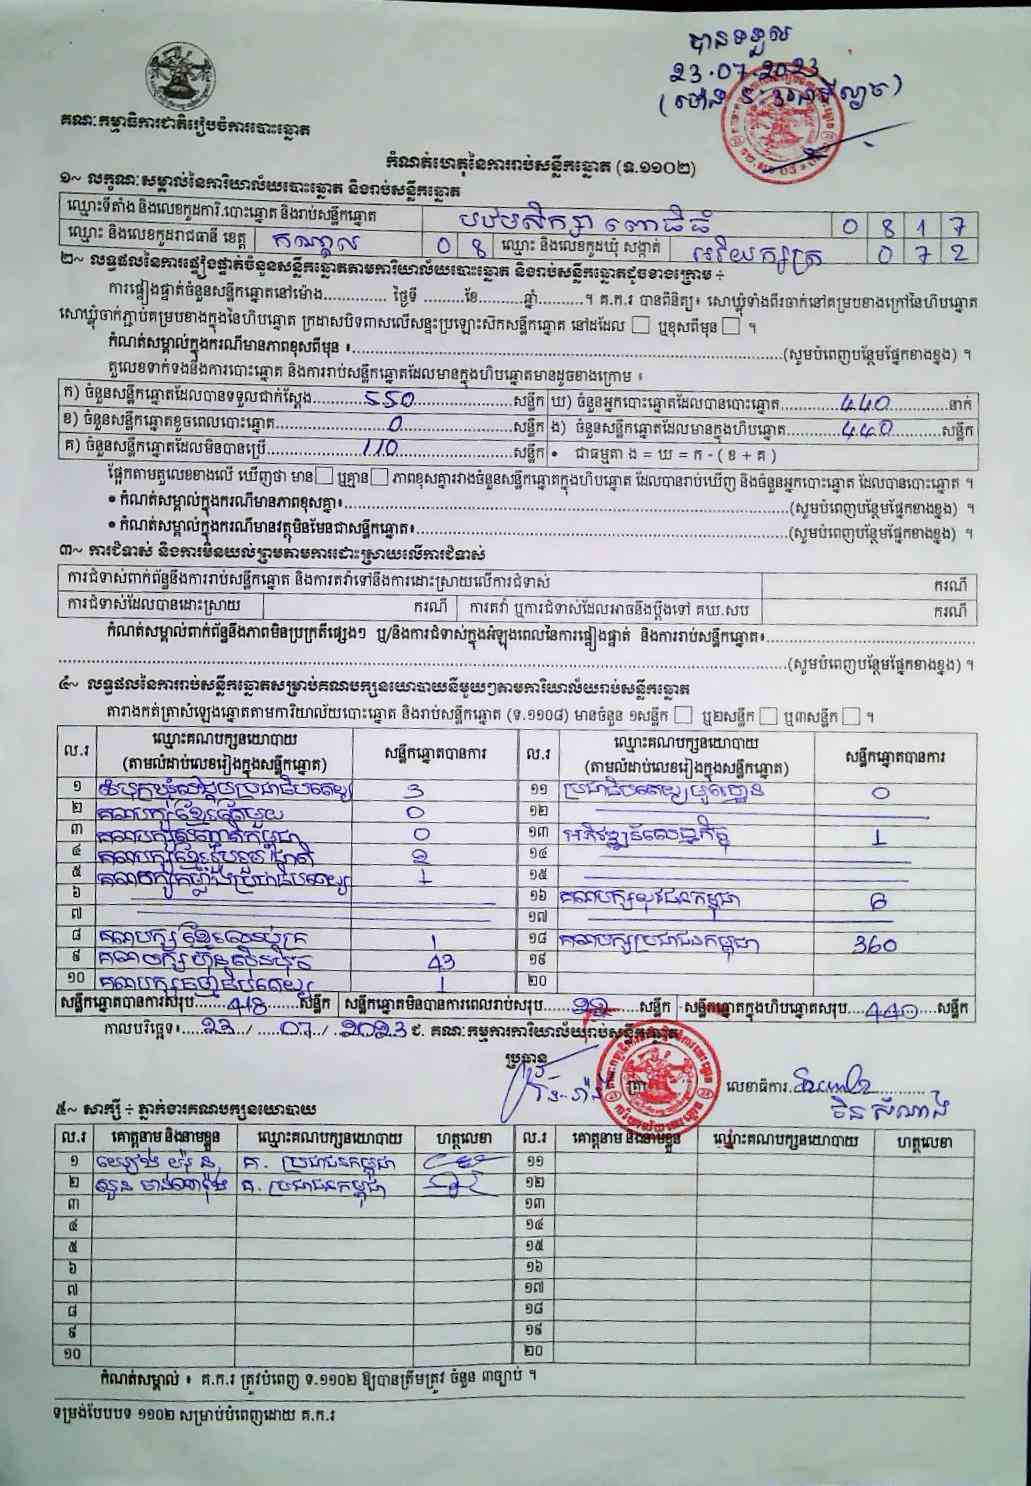 បានទទួល
23.07.2023
គណៈកម្មាធិការជាតិរៀបចំការបោះឆ្នោត
កំណត់ហេតុនៃការរាប់សន្លឹកឆ្នោត (ទ.១១០២)
១~ លក្ខណៈសម្គាល់នៃការិយាល័យបោះឆ្នោត និងរាប់សន្លឹកឆ្នោត
ឈ្មោះទីតាំង និងលេខកូដការិ.បោះឆ្នោត និងរាប់សន្លឹកឆ្នោត បឋមសិក្សា ពោធិធំ 0 8 1 7
ឈ្មោះ និងលេខកូដរាជធានី ខេត្ត កណ្តាល 0 8 ឈ្មោះ និងលេខកូដឃុំ សង្កាត់ អរិយក្សត្រ 0 7 2
២~ លទ្ធផលនៃការផ្ទៀងផ្ទាត់ចំនួនសន្លឹកឆ្នោតតាមការិយាល័យបោះឆ្នោត និងរាប់សន្លឹកឆ្នោតដូចខាងក្រោម ÷
ការផ្ទៀងផ្ទាត់ចំនួនសន្លឹកឆ្នោតនៅម៉ោង.............. ថ្ងៃទី .........ខែ..........ឆ្នាំ..........។ គ.ក.រ បានពិនិត្យ៖ សោឃ្លុំទាំងពីរចាក់នៅគម្របខាងក្រៅនៃហិបឆ្នោត
សោឃ្លុំចាក់ភ្ជាប់គម្របខាងក្នុងនៃហិបឆ្នោត ក្រដាសបិទពាសលើសន្ទះប្រឡោះសឹកសន្លឹកឆ្នោត នៅដដែល ☐ ឬខុសពីមុន ☐ ។
កំណត់សម្គាល់ក្នុងករណីមានភាពខុសពីមុន ៖..........(សូមបំពេញបន្ថែមផ្នែកខាងខ្នង) ។
តួលេខទាក់ទងនឹងការបោះឆ្នោត និងការរាប់សន្លឹកឆ្នោតដែលមានក្នុងហិបឆ្នោតមានដូចខាងក្រោម ៖
ក) ចំនួនសន្លឹកឆ្នោតដែលបានទទួលជាក់ស្តែង.......550.......សន្លឹក ឃ) ចំនួនអ្នកបោះឆ្នោតដែលបានបោះឆ្នោត.......440.......នាក់
ខ) ចំនួនសន្លឹកឆ្នោតខូចពេលបោះឆ្នោត.......0.......សន្លឹក ង) ចំនួនសន្លឹកឆ្នោតដែលមានក្នុងហិបឆ្នោត.......440.......សន្លឹក
គ) ចំនួនសន្លឹកឆ្នោតដែលមិនបានប្រើ.......110.......សន្លឹក • ជាធម្មតា ង = ឃ = ក - ( ខ + គ )
ផ្អែកតាមតួលេខខាងលើ ឃើញថា មាន ☐ ឬគ្មាន ☐ ភាពខុសគ្នារវាងចំនួនសន្លឹកឆ្នោតក្នុងហិបឆ្នោត ដែលបានរាប់ឃើញ និងចំនួនអ្នកបោះឆ្នោត ដែលបានបោះឆ្នោត ។
• កំណត់សម្គាល់ក្នុងករណីមានភាពខុសគ្នា៖..........(សូមបំពេញបន្ថែមផ្នែកខាងខ្នង) ។
• កំណត់សម្គាល់ក្នុងករណីមានវត្ថុមិនមែនជាសន្លឹកឆ្នោត៖..........(សូមបំពេញបន្ថែមផ្នែកខាងខ្នង) ។
៣~ ការជំទាស់ និងការមិនយល់ព្រមតាមការដោះស្រាយលើការជំទាស់
ការជំទាស់ពាក់ព័ន្ធនឹងការរាប់សន្លឹកឆ្នោត និងការតវ៉ាទៅនឹងការដោះស្រាយលើការជំទាស់ ករណី
ការជំទាស់ដែលបានដោះស្រាយ ករណី ការតវ៉ា ឬការជំទាស់ដែលអាចនឹងប្តឹងទៅ គឃ.សប ករណី
កំណត់សម្គាល់ពាក់ព័ន្ធនឹងភាពមិនប្រក្រតីផ្សេងៗ ឬ/និងការជំទាស់ក្នុងអំឡុងពេលនៃការផ្ទៀងផ្ទាត់ និងការរាប់សន្លឹកឆ្នោត៖..........
..........(សូមបំពេញបន្ថែមផ្នែកខាងខ្នង) ។
៤~ លទ្ធផលនៃការរាប់សន្លឹកឆ្នោតសម្រាប់គណបក្សនយោបាយនីមួយៗតាមការិយាល័យរាប់សន្លឹកឆ្នោត
តារាងកត់ត្រាសំឡេងឆ្នោតតាមការិយាល័យបោះឆ្នោត និងរាប់សន្លឹកឆ្នោត (ទ.១១០៨) មានចំនួន ១សន្លឹក ☐ ឬ២សន្លឹក ☐ ឬ៣សន្លឹក ☐ ។
ល.រ ឈ្មោះគណបក្សនយោបាយ (តាមលំដាប់លេខរៀងក្នុងសន្លឹកឆ្នោត) សន្លឹកឆ្នោតបានការ ល.រ ឈ្មោះគណបក្សនយោបាយ (តាមលំដាប់លេខរៀងក្នុងសន្លឹកឆ្នោត) សន្លឹកឆ្នោតបានការ
១ សំបុកឃ្មុំសង្គមប្រជាធិបតេយ្យ 3 ១១ ប្រជាធិបតេយ្យមូលដ្ឋាន 0
២ គណបក្សខ្មែរតែមួយ 0 ១២
៣ គណបក្សសញ្ជាតិកម្ពុជា 0 ១៣ អភិវឌ្ឍន៍សេដ្ឋកិច្ច 1
៤ គណបក្សខ្មែររួបរួមជាតិ 2 ១៤
៥ គណបក្សកម្លាំងប្រជាធិបតេយ្យ 1 ១៥
៦ ១៦ គណបក្សយុវជនកម្ពុជា 6
៧ ១៧
៨ គណបក្សខ្មែរអភិរក្ស 1 ១៨ គណបក្សប្រជាជនកម្ពុជា 360
៩ គណបក្សហ៊្វុនស៊ិនប៉ិច 43 ១៩
១០ គណបក្សធម្មាធិបតេយ្យ 1 ២០
សន្លឹកឆ្នោតបានការសរុប.......418.......សន្លឹក សន្លឹកឆ្នោតមិនបានការពេលរាប់សរុប.......22.......សន្លឹក សន្លឹកឆ្នោតក្នុងហិបឆ្នោតសរុប.......440.......សន្លឹក
កាលបរិច្ឆេទ៖ 23 / 07 / 2023 ជ. គណៈកម្មការការិយាល័យរាប់សន្លឹកឆ្នោត
ប្រធាន
ត្រា
លេខាធិការ
ចិន សំណាង
៥~ សាក្សី ÷ ភ្នាក់ងារគណបក្សនយោបាយ
ល.រ គោត្តនាម និងនាមខ្លួន ឈ្មោះគណបក្សនយោបាយ ហត្ថលេខា ល.រ គោត្តនាម និងនាមខ្លួន ឈ្មោះគណបក្សនយោបាយ ហត្ថលេខា
១ គ. ប្រជាជនកម្ពុជា ១១
២ គ. ប្រជាជនកម្ពុជា ១២
៣ ១៣
៤ ១៤
៥ ១៥
៦ ១៦
៧ ១៧
៨ ១៨
៩ ១៩
១០ ២០
កំណត់សម្គាល់ ៖ គ.ក.រ ត្រូវបំពេញ ទ.១១០២ ឱ្យបានត្រឹមត្រូវ ចំនួន ៣ច្បាប់ ។
ទម្រង់បែបបទ ១១០២ សម្រាប់បំពេញដោយ គ.ក.រ